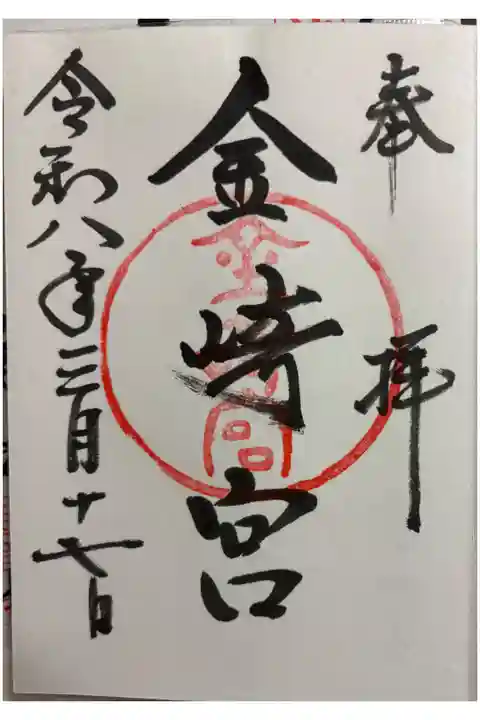 奉拝
金崎宮
令和八年三月十七日